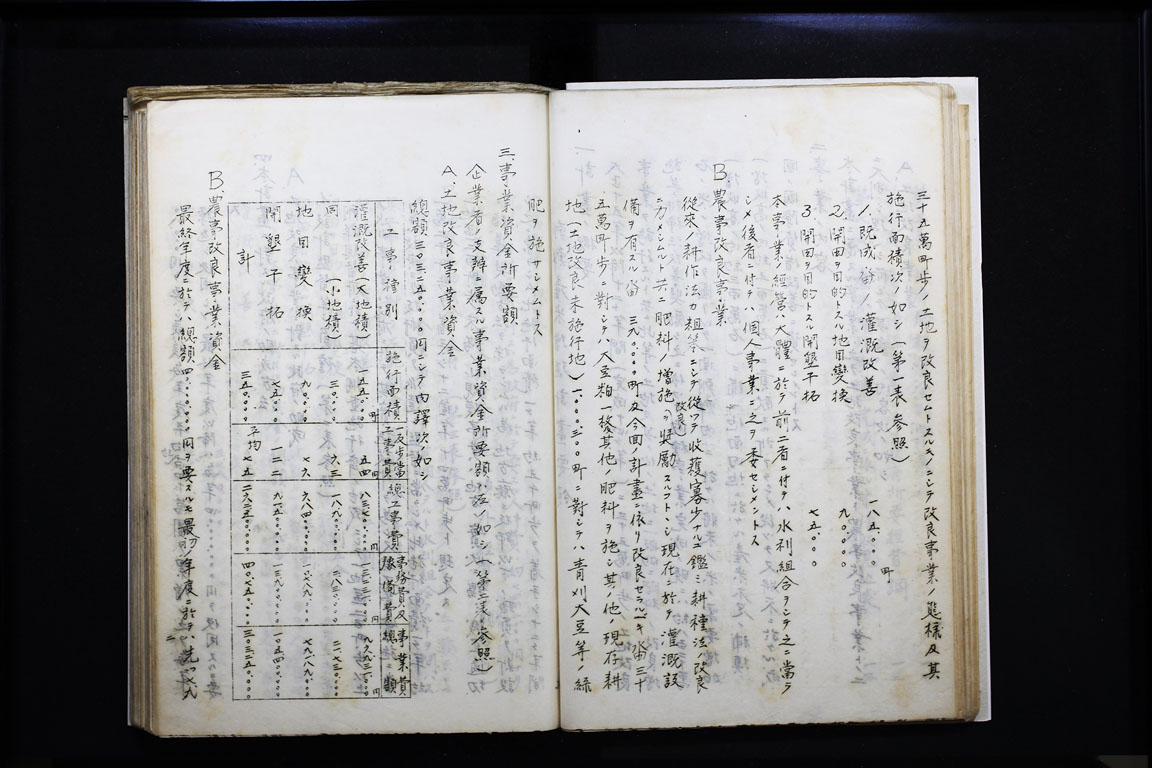 三十五萬町歩ノ土地ヲ改良セムトスルモノニシテ改良事業ノ態樣及其
施行面積次ノ如シ(第一表参照)
1. 既成畓ノ灌漑改善 一八五.〇〇〇町
2. 開田ヲ目的トスル地目變換 九〇.〇〇〇
3. 開田ヲ目的トスル開墾干拓 七五.〇〇〇
本事業ノ經營ハ大體ニ於テ前二者ニ付テハ水利組合ヲシテ之ニ當ラ
シメ後者ニ付テハ個人事業ニ之ヲ委セシメントス
B 農事改良事業
從來ノ耕作法カ粗笨ニシテ從ツテ收獲寡少ナルニ鑑ミ耕種法ノ改良
ニカメシムルト共ニ肥料ノ増施改良ヲ奨勵スルコトトシ現在ニ於テ灌漑設
備ヲ有スル畓 三九〇.〇〇〇町及今回ノ計畫ニ依リ改良セラルヘキ水田三十
五萬町歩ニ對シテハ大豆粕一般其他ノ肥料ヲ施シ其ノ他ノ現存耕
地(土地改良未施行地) ニ對シテハ青刈大豆等ノ緑
肥ヲ施サシメムトス
三、事業資金所要額
企業者ノ支辨ニ属スル事業資金所要額ハ左ノ如シ(第二表参照)
A. 土地改良事業資金
總額三〇三.二五〇.〇〇〇円ニシテ内譯次ノ如シ
工事種別 施行面積 一反歩當工事費 總工事費 事務費及豫備費 事業費總額
灌漑改善(大地積) 一五五.〇〇〇町 五四 八三.七〇〇.〇〇〇円
同(小地積) 三〇.〇〇〇 六三 一八.九〇〇.〇〇〇
地目變換 九〇.〇〇〇 七六 六八.四〇〇.〇〇〇
開墾干拓 七五.〇〇〇 一二二 九一.五〇〇.〇〇〇 一三.九〇〇.〇〇〇 一〇五.四〇〇.〇〇〇
計 三五〇.〇〇〇 平均 七五 二六二.五〇〇.〇〇〇 四〇.七五〇.〇〇〇 三〇三.二五〇.〇〇〇
B. 農事改良事業資金
最終年度ニ於テハ總額四〇.〇〇〇.〇〇〇円ヲ要スルモ最初ノ年度ニ於テハ先ツ